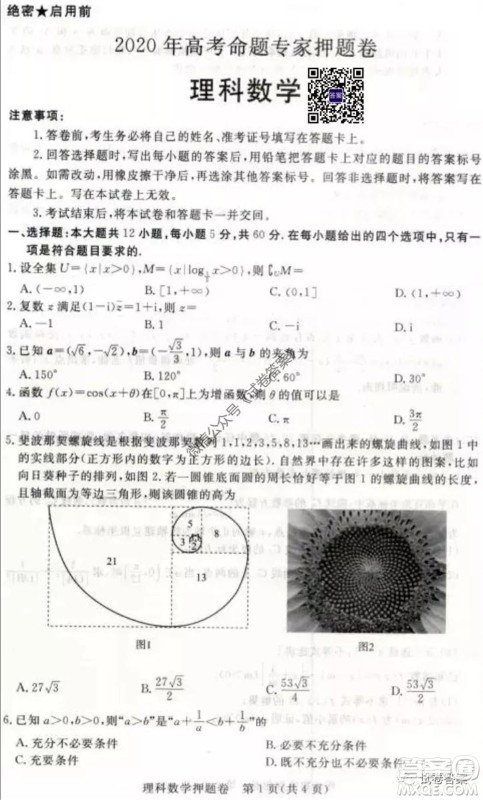 绝密★启用前
2020年高考命题专家押题卷
理科数学
注意事项:
1.答卷前,考生务必将自己的姓名、准考证号填写在答题卡上。
2.回答选择题时,写出每小题的答案后,用铅笔把答题卡上对应的题目的答案标号
涂黑。如需改动,用橡皮擦干净后,再选涂其他答案标号。回答非选择题时,将答案写在
答题卡上。写在本试卷上无效。
3.考试结束后,将本试卷和答题卡一并交回。
一、选择题:本大题共12小题,每小题5分,共60分.在每小题给出的四个选项中,只有一
项是符合题目要求的.
1.设全集U={x|x>0},M={x|log_{1/2}x>0},则∁_U M=
A.(-∞,1) B.[1,+∞) C.(0,1] D.(1,+∞)
2.复数z满足(1-i)z̄=1+i,则z=
A.-1 B.1 C.-i D.i
3.已知a=(√6,-√2),b=(-√3/3,1),则a与b的夹角为
A.150° B.120° C.60° D.30°
4.函数f(x)=cos(x+θ)在[0,π]上为增函数,则θ的值可以是
A.0 B.π/2 C.π D.3π/2
5.斐波那契螺旋线是根据斐波那契数列1,1,2,3,5,8,13…画出来的螺旋曲线,如图1中
的实线部分(正方形内的数字为正方形的边长).自然界中存在许多这样的图案,比如
向日葵种子的排列,如图2.若一圆锥底面圆的周长恰好等于图1的螺旋曲线的长度,
且轴截面为等边三角形,则该圆锥的高为
5
8
3
2
21
13
图1
图2
A.27√3 B.27√3/2 C.53√3/4 D.53√3/2
6.已知a>0,b>0,则“a>b”是“a+1/a<b+1/b”的
A.充分不必要条件 B.必要不充分条件
C.充要条件 D.既不充分也不必要条件
理科数学押题卷 第1页(共4页)
微信公众号《试卷答案》
试卷答案